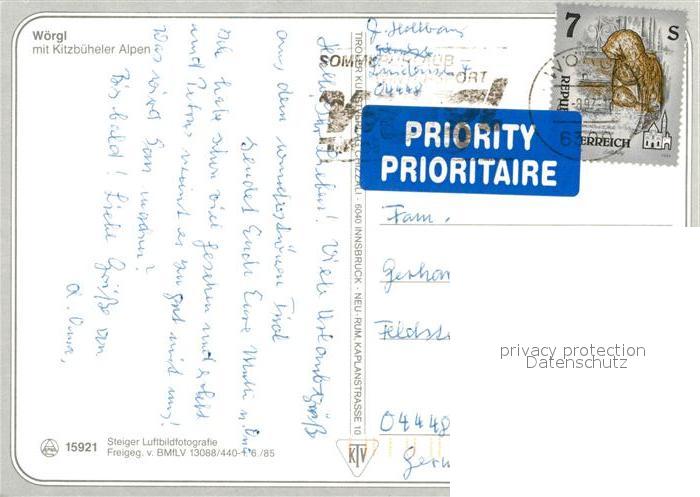 Wörgl
mit Kitzbüheler Alpen
Ihr Lieben! Viele Urlaubsgrüße
aus dem wunderschönen Tirol
sendet Euch Eure Mutti u. Oma
Wir haben schon viel gesehen und erlebt
und Petrus meint es so gut mit uns!
Was wird Sam machen?
Bis bald! Liebe Grüße von
Oma,
15921
Steiger Luftbildfotografie
Freigeg. v. BMfLV 13088/440-1.6/85
TIROLER KUNSTVERLAG CHIZZALI · 6040 INNSBRUCK - NEU-RUM, KAPLANSTRASSE 10
KTV
04448
SOMM
ORT
7 S
REPU
ERREICH
WÖ
6300
PRIORITY
PRIORITAIRE
Fam.
Gerhar
Feldst
04448
Germ
privacy protection
Datenschutz